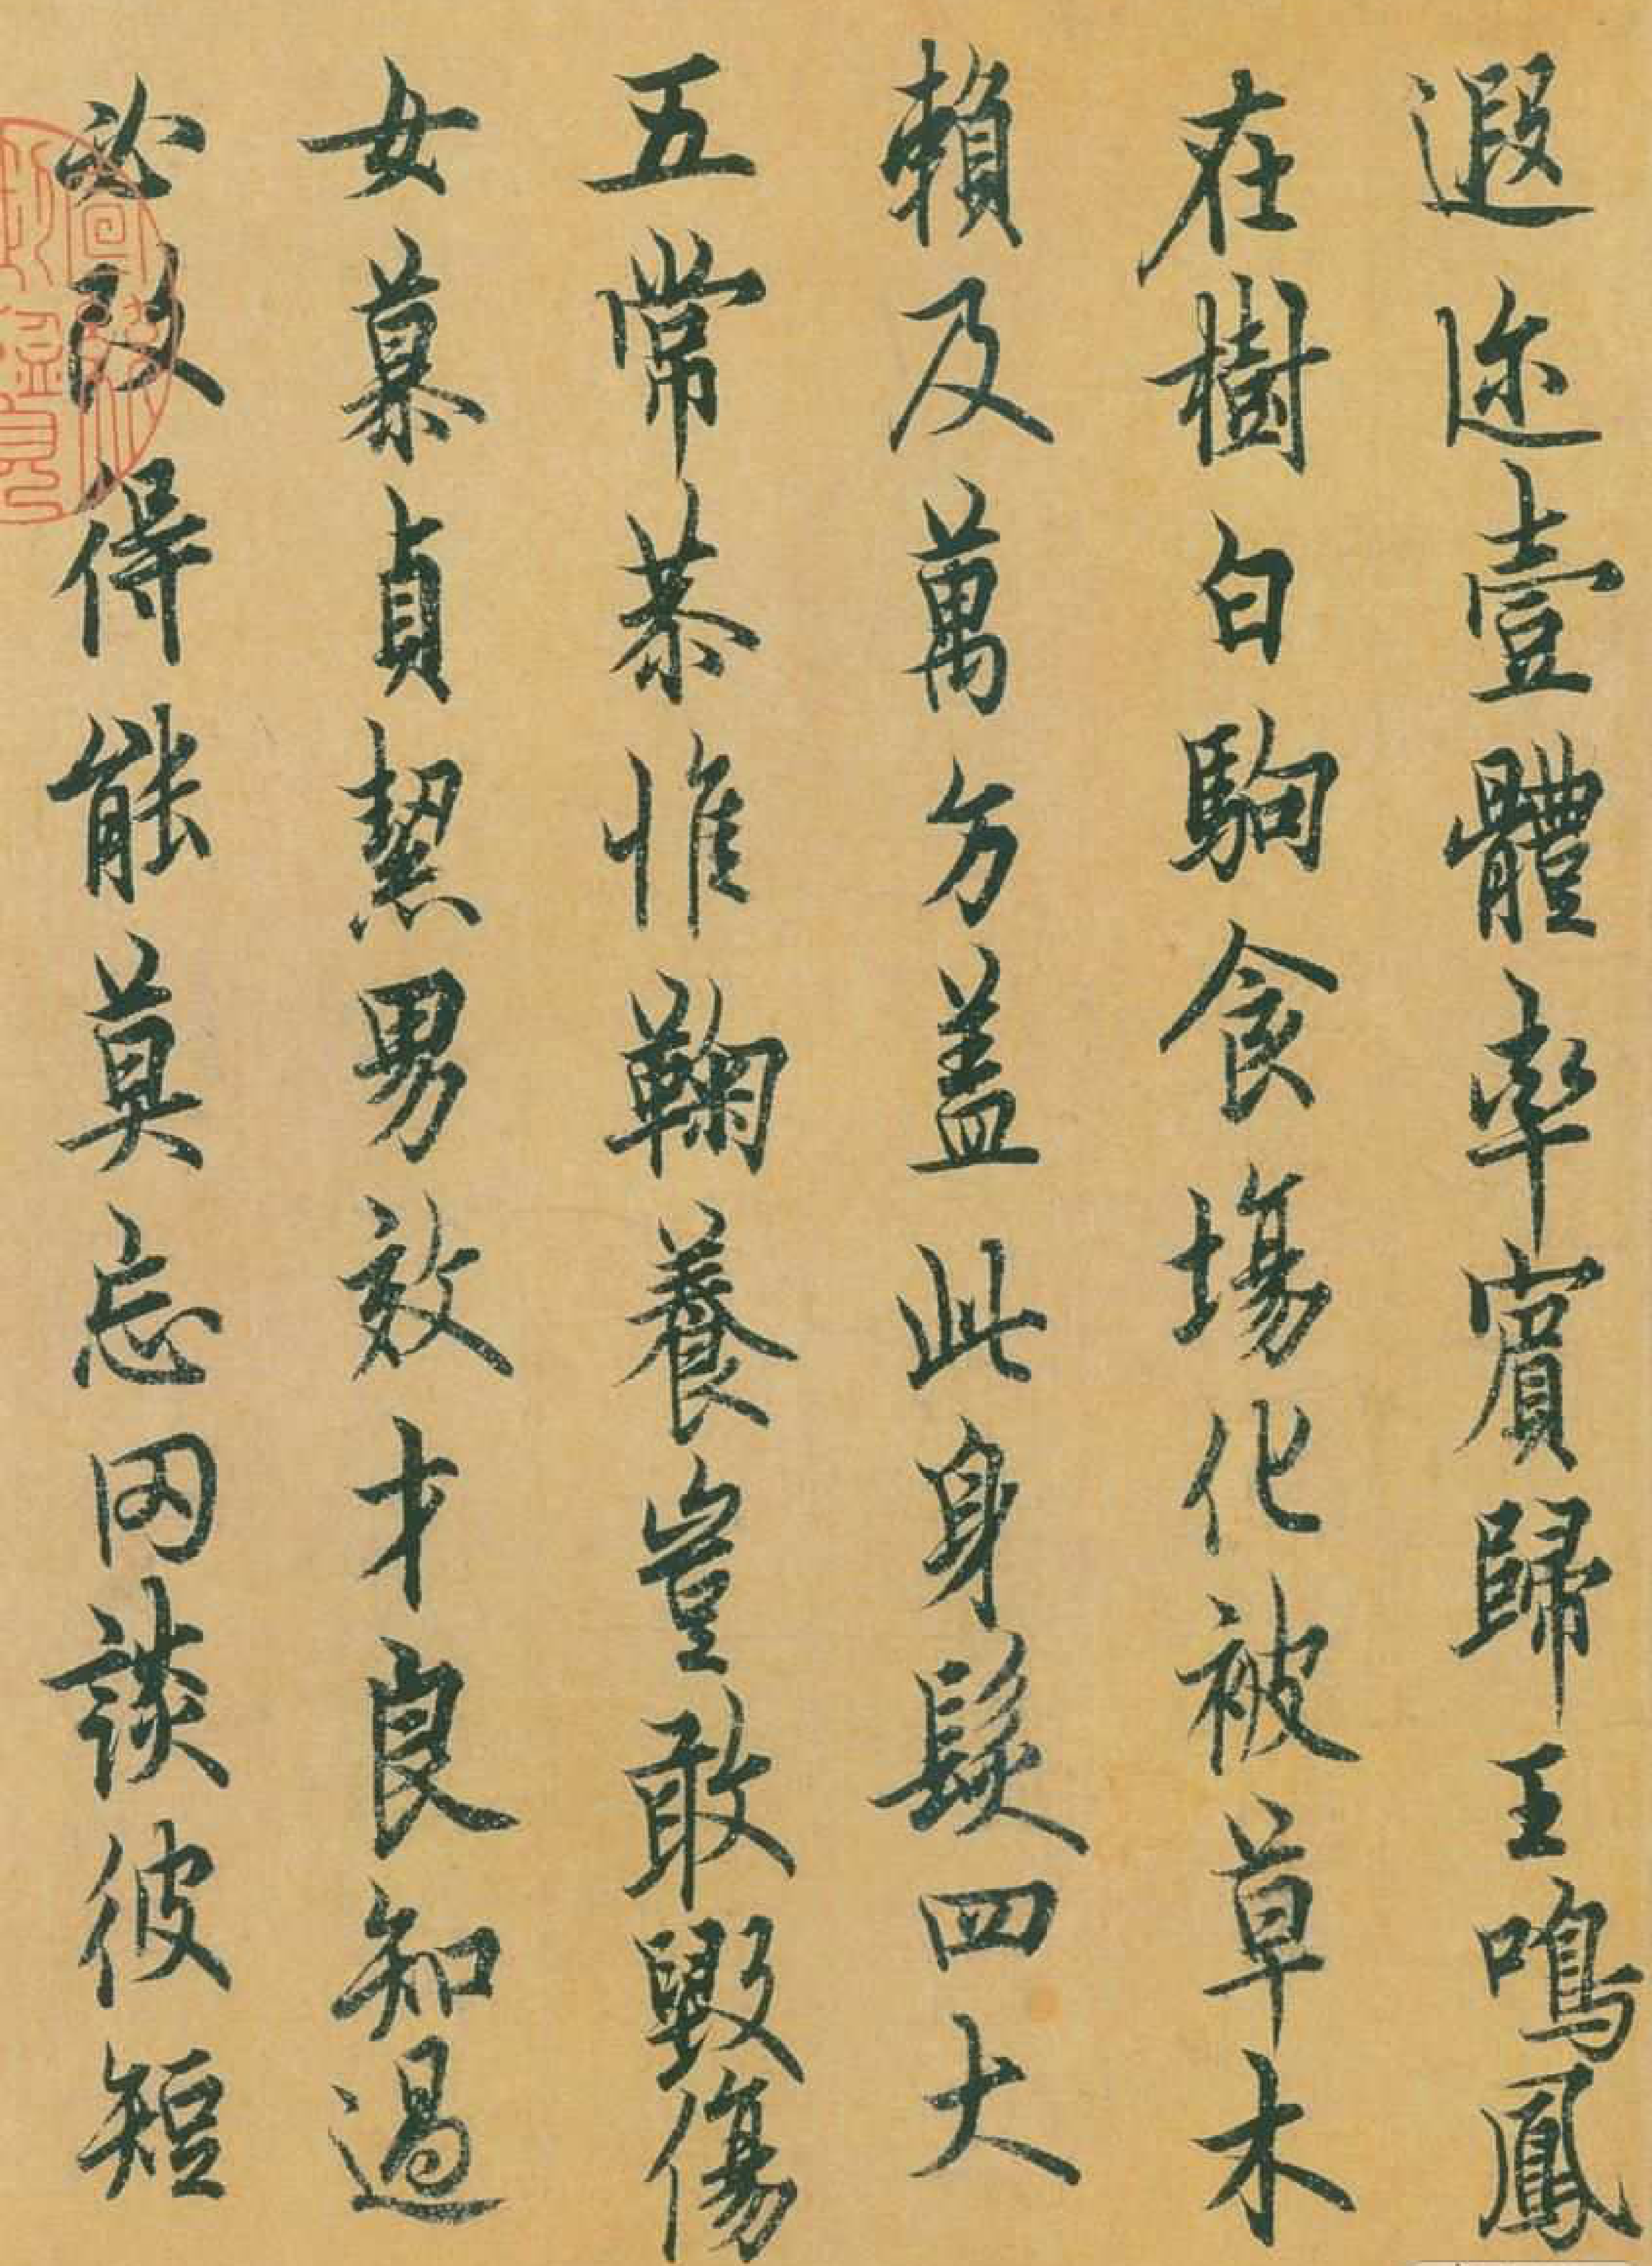 遐迩壹體率賓歸王鳴鳳
在樹白駒食場化被草木
賴及萬方蓋此身髮四大
五常恭惟鞠養豈敢毀傷
女慕貞絜男效才良知過
必改得能莫忘罔談彼短